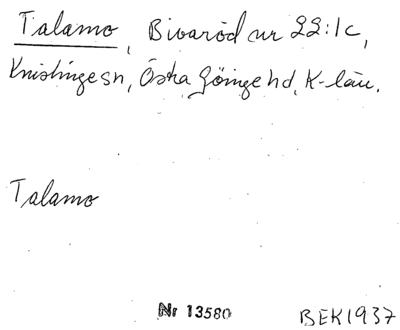 Talamo, Bivaröd nr 22:1c,
Knislinge sn, Östra Göinge hd, K-län.
Talamo
Nr 13580
BEK1937